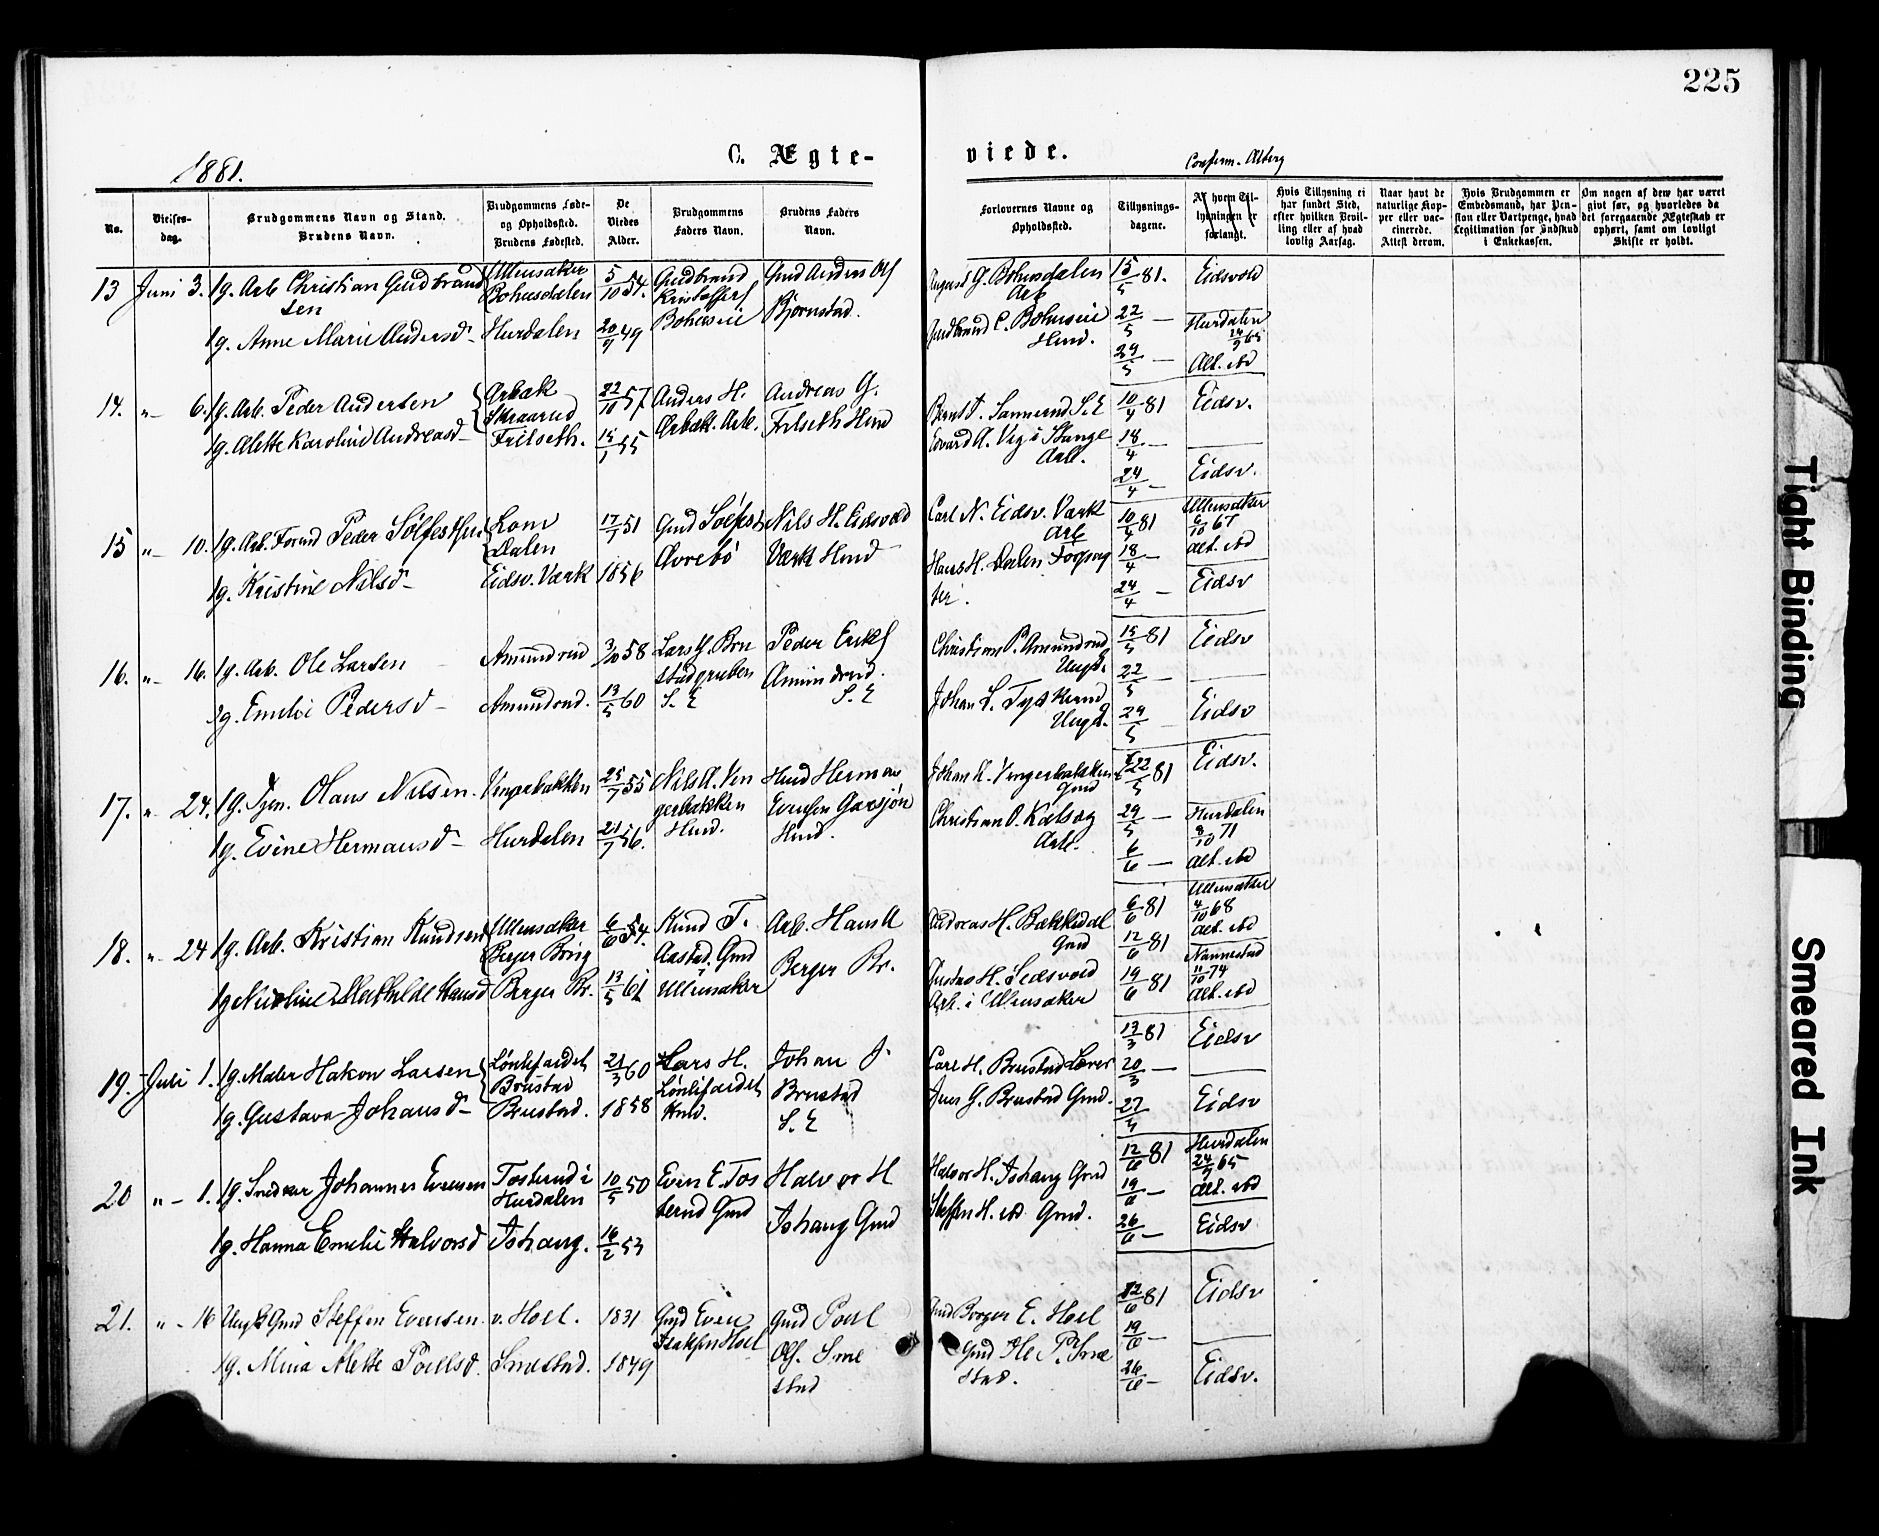 225
1881.
C. Ægte-
viede.
Confirm. Attest
No.
Vielses-
dag.
Brudgommens Navn og Stand.
Brudens Navn.
Brudgommens Føde-
og Opholdssted.
Brudens Fødested.
De
Viedes
Alder.
Brudgommens
Faders Navn.
Brudens Faders
Navn.
Forlovernes Navne og
Opholdssted.
Tillysnings-
dagene.
Af hvem Til-
lysningen er
forlangt.
Hvis Tillysning ei
har fundet Sted,
efter hvilken Bevil-
ling eller af hvad
lovlig Aarsag.
Naar havt de
naturlige Kop-
per eller vac-
cinerede.
Attest derom.
Hvis Brudgommen er
Embedsmand, har Pen-
sion eller Vartpenge, hvad
Legitimation for Indskud
i Enkekassen.
Om nogen af dem har været
gift før, og hvorledes da
det foregaaende Ægteskab er
ophørt, samt om lovligt
Skifte er holdt.
13 Juni 3. Ug. Arb. Christian Gudbrand
sen
Ullensaker
Bohusdalen
5/10 54.
Gudbrand
Kristoffers
Bohuseie
Gmd Anders Ols
Bjørnstad.
G. Bohusdalen
Arb
15/5 81.
Eidsvold
Ug. Anne Marie Andersd Hurdalen 20/9 49
Gudbrand C. Bohuseie
Husd.
22/5 —
Hurdalen
29/5 —
Att. ibd
14. „ 6. Ug. Arb. Peder Andersen
Ørbæk
Skaarud
22/10 57
Anders H.
Ørbæk. Arb.
Andreas G.
Frilseth Husd
Bernt J. Sannerud S.E
10/4 81
Eidsv.
Ug. Alette Karoline Andreasd Frilseth. 15/1 55
Edvard A. Vig i Stange
Arb.
18/4 —
24/4 —
Eidsv.
15 „ 10. Ug. Arb. Formd Peder Sølfesthsen
Lom
Dalen
17/7 51
Gmd Sølfest
Øvrebø
Nils H. Eidsvold
Værk Husd
Carl N. Eidsv. Værk
Arb
10/4 81
Ullensaker
6/10 67
Att. ibd
Ug. Kristine Nilsd Eidsv. Værk 1856
Hans H. Dalen
18/4 —
24/4 —
Eidsv
16. „ 16. Ug. Arb. Ole Larsen Amundrud 3/10 58
Lars G. Bru
stadgruben
S. E
Peder Eriks
Amundrud.
S. E
Christian P. Amundrud
Ungk.
15/5 81
Eidsv
Ug. Emelie Pedersd Amundrud. 13/5 60
Johan L. Tyskerud
Ungk.
22/5 —
29/5 —
Eidsv
17. „ 24. Ug. Tjen. Olaus Nilsen. Vingerbakken 25/7 55
Nils A. Vin
gerbakken
Husd.
Husd Herman
Evensen Garsjøn
Husd.
Johan N. Vingerbakken
Gmd
22/5 81
Eidsv.
Ug. Evine Hermansd Hurdalen 21/7 56.
Christian O. Kalsag
Arb.
29/5 —
6/6 —
Hurdalen
8/10 71
Att. ibd
18. „ 24 Ug. Arb. Kristian Knudsen
Ullensaker
Berger Brug
6/6 54.
Knud T.
Aastad. Gmd
Ullensaker
Arb. Hans A
Berger Br.
Andreas H. Bækkedal
Gmd
6/6 81
Ullensaker
4/10 68
Att. ibd
Ug Nicoline Mathilde Hansd Berger Br. 13/5 61
Gustav H. Ledsvold
Arb. i Ullensaker
12/6 81
19/6 81
Nannestad
11/10 74
Att. ibd
19. Juli 1. Ug. Maler Hakon Larsen
Lønlifaldet
Brustad
21/3 60
Lars H.
Lønlifaldet
Husd.
Johan J.
Brustad
S. E
Carl H. Brustad Lærer
13/3 81
Eidsv
Ug. Gustava Johansd Brustad. 1858
Jens G. Brustad Gmd.
20/3 —
27/3
Eidsv
20 „ 1. Ug. Snedker Johannes Evensen
Tosterud i
Hurdalen
10/5 50
Even E. Tos
terud Gmd
Halvor H
Ishaug Gmd
Halvor H. Ishaug Gmd
Steffen H. ibd Gmd.
12/6 81
Hurdalen
24/9 65
Att. ibd
Ug. Hanna Emelie Halvorsd Ishaug. 16/2 53
19/6 —
26/6 —
Eidsv
21. „ 16 Gmd Steffen Evensen v. Hoel. 1831
Gmd Even
Isaksen Hoel
Gmd Poul
Ols. Sme
stad
Gmd Borger E. Hoel
12/6 81
Eidsv
Ug. Mina Alette Poulsd. Smestad. 1849
Gmd Ole P. Sme
stad.
19/6 —
26/6 —
Eidsv.
Tight Binding
Smeared Ink